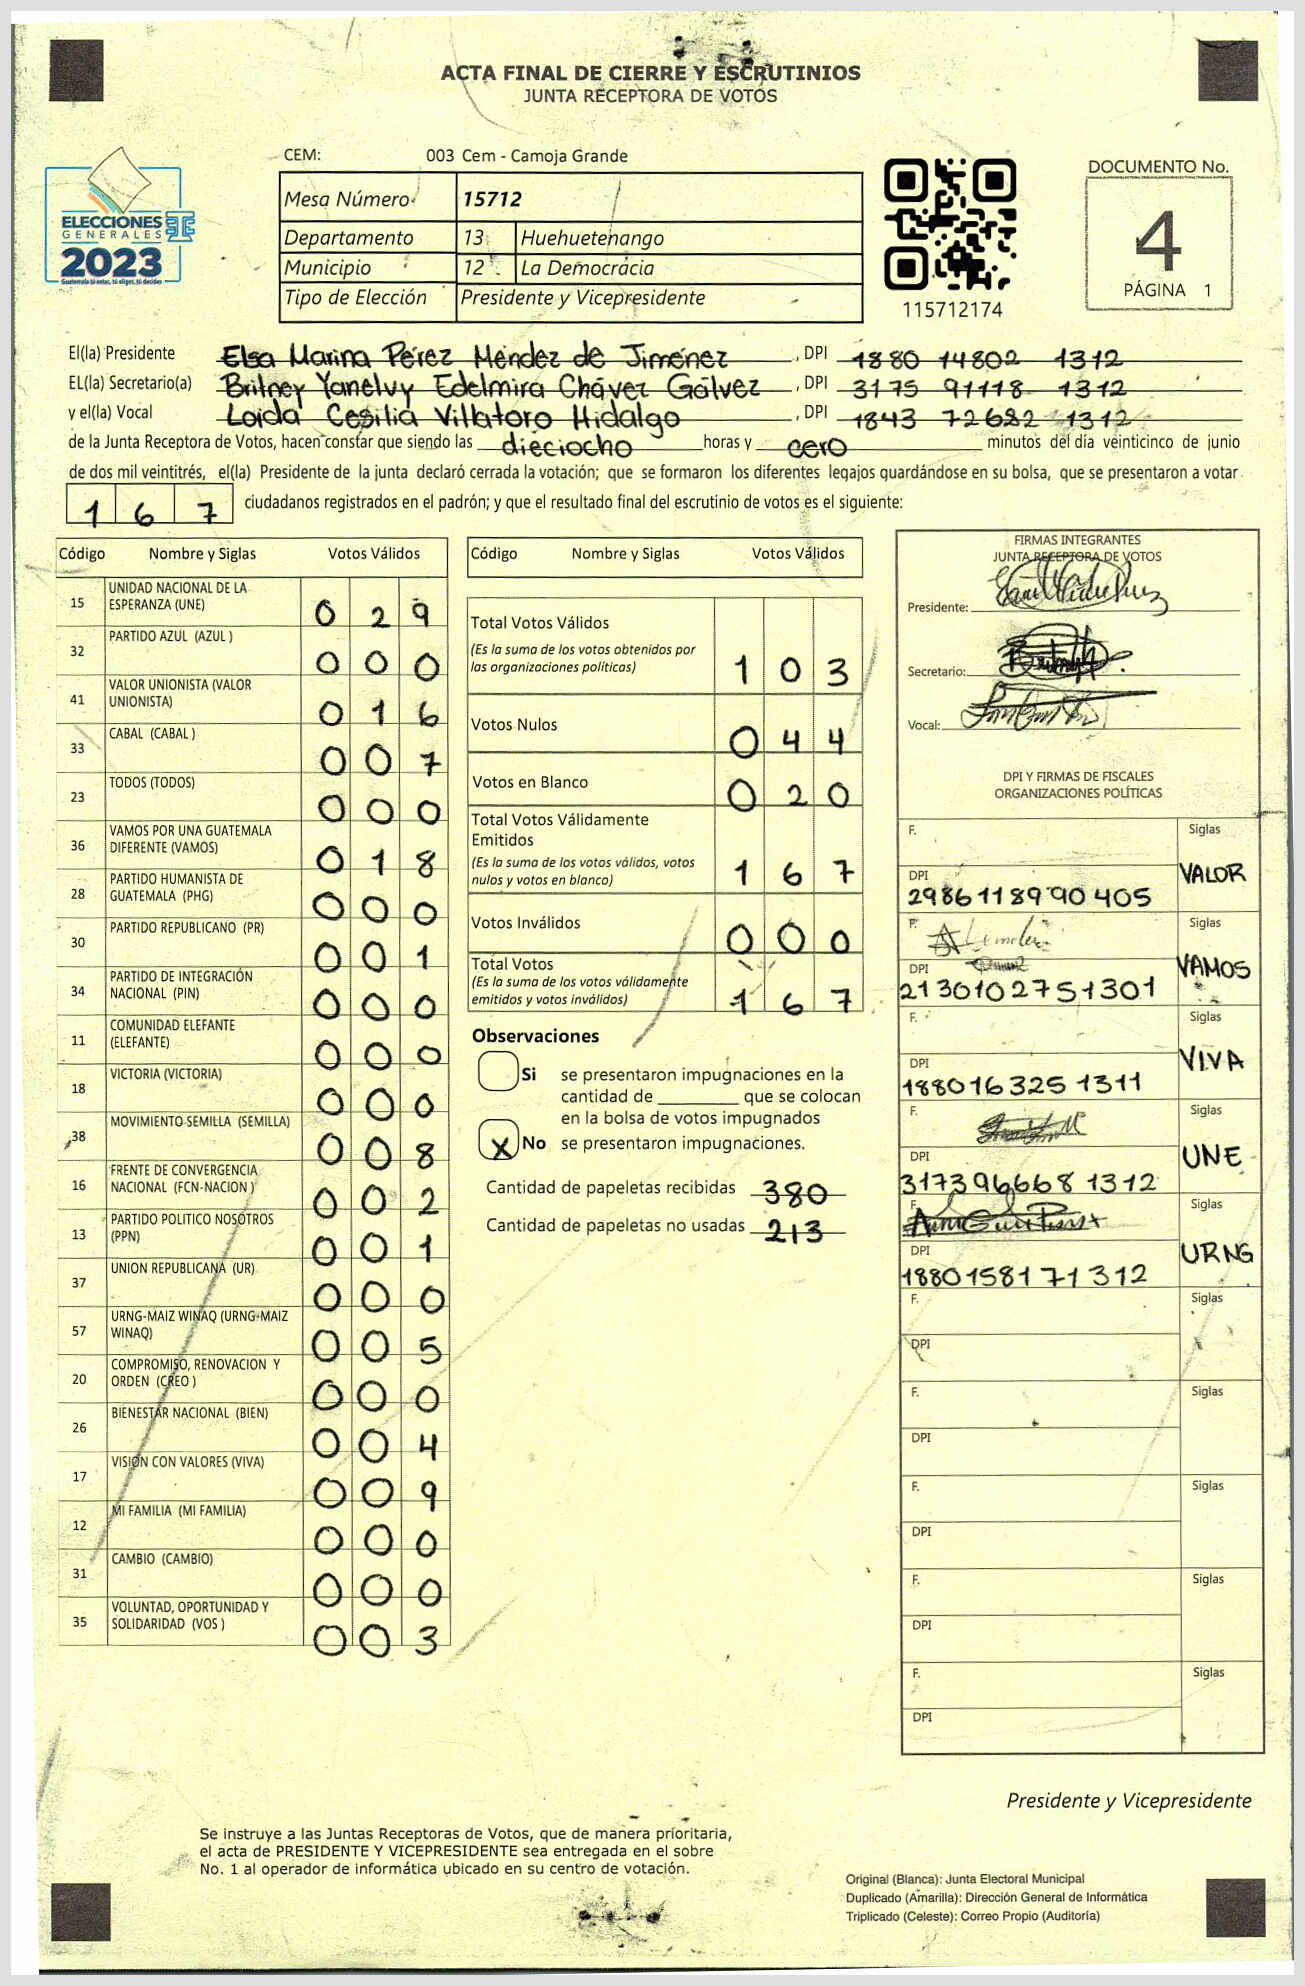 ACTA FINAL DE CIERRE Y ESCRUTINIOS
JUNTA RECEPTORA DE VOTOS
CEM: 003 Cem - Camoja Grande
Mesa Número 15712
Departamento 13 Huehuetenango
Municipio 12 La Democracia
Tipo de Elección Presidente y Vicepresidente
ELECCIONES
GENERALES
2023
Guatemala tú votas, tú eliges, tú decides
115712174
DOCUMENTO No.
4
PÁGINA 1
El(la) Presidente Elsa Marina Pérez Méndez de Jiménez, DPI 1880 14802 1312
EL(la) Secretario(a) Britney Yanelvy Edelmira Chávez Gálvez, DPI 3175 91118 1312
y el(la) Vocal Loida Cesilia Villatoro Hidalgo, DPI 1843 72682 1312
de la Junta Receptora de Votos, hacen constar que siendo las dieciocho horas y cero minutos del día veinticinco de junio
de dos mil veintitrés, el(la) Presidente de la junta declaró cerrada la votación; que se formaron los diferentes legajos guardándose en su bolsa, que se presentaron a votar
1 6 7 ciudadanos registrados en el padrón; y que el resultado final del escrutinio de votos es el siguiente:
Código Nombre y Siglas Votos Válidos
15 UNIDAD NACIONAL DE LA ESPERANZA (UNE) 0 2 9
32 PARTIDO AZUL (AZUL ) 0 0 0
41 VALOR UNIONISTA (VALOR UNIONISTA) 0 1 6
33 CABAL (CABAL ) 0 0 7
23 TODOS (TODOS) 0 0 0
36 VAMOS POR UNA GUATEMALA DIFERENTE (VAMOS) 0 1 8
28 PARTIDO HUMANISTA DE GUATEMALA (PHG) 0 0 0
30 PARTIDO REPUBLICANO (PR) 0 0 1
34 PARTIDO DE INTEGRACIÓN NACIONAL (PIN) 0 0 0
11 COMUNIDAD ELEFANTE (ELEFANTE) 0 0 0
18 VICTORIA (VICTORIA) 0 0 0
38 MOVIMIENTO SEMILLA (SEMILLA) 0 0 8
16 FRENTE DE CONVERGENCIA NACIONAL (FCN-NACION ) 0 0 2
13 PARTIDO POLITICO NOSOTROS (PPN) 0 0 1
37 UNION REPUBLICANA (UR) 0 0 0
57 URNG-MAIZ WINAQ (URNG-MAIZ WINAQ) 0 0 5
20 COMPROMISO, RENOVACION Y ORDEN (CREO ) 0 0 0
26 BIENESTAR NACIONAL (BIEN) 0 0 4
17 VISION CON VALORES (VIVA) 0 0 9
12 MI FAMILIA (MI FAMILIA) 0 0 0
31 CAMBIO (CAMBIO) 0 0 0
35 VOLUNTAD, OPORTUNIDAD Y SOLIDARIDAD (VOS ) 0 0 3
Código Nombre y Siglas Votos Válidos
Total Votos Válidos
(Es la suma de los votos obtenidos por
las organizaciones políticas) 1 0 3
Votos Nulos 0 4 4
Votos en Blanco 0 2 0
Total Votos Válidamente
Emitidos
(Es la suma de los votos válidos, votos
nulos y votos en blanco) 1 6 7
Votos Inválidos 0 0 0
Total Votos
(Es la suma de los votos válidamente
emitidos y votos inválidos) 1 6 7
Observaciones
Si se presentaron impugnaciones en la
cantidad de ________ que se colocan
en la bolsa de votos impugnados
X No se presentaron impugnaciones.
Cantidad de papeletas recibidas 380
Cantidad de papeletas no usadas 213
FIRMAS INTEGRANTES
JUNTA RECEPTORA DE VOTOS
Presidente:
Secretario:
Vocal:
DPI Y FIRMAS DE FISCALES
ORGANIZACIONES POLÍTICAS
F. Siglas
DPI VALOR
2986118990405
F. Siglas
DPI VAMOS
2130102751301
F. Siglas
DPI VIVA
1880163251311
F. Siglas
DPI UNE
3173966681312
F. Siglas
DPI URNG
1880158171312
F. Siglas
DPI
F. Siglas
DPI
F. Siglas
DPI
F. Siglas
DPI
F. Siglas
DPI
Presidente y Vicepresidente
Se instruye a las Juntas Receptoras de Votos, que de manera prioritaria,
el acta de PRESIDENTE Y VICEPRESIDENTE sea entregada en el sobre
No. 1 al operador de informática ubicado en su centro de votación.
Original (Blanca): Junta Electoral Municipal
Duplicado (Amarilla): Dirección General de Informática
Triplicado (Celeste): Correo Propio (Auditoría)